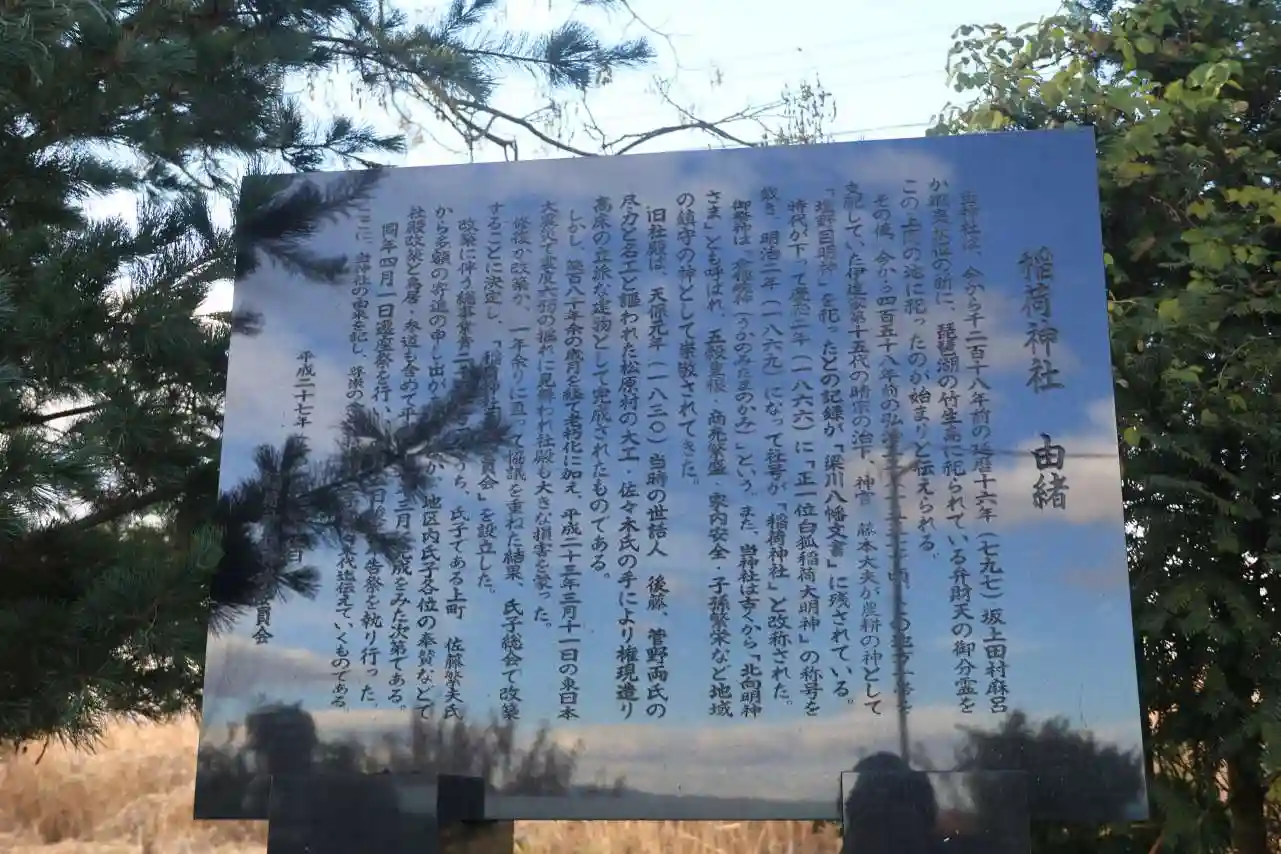 稲荷神社 由緒
当神社は、今から千二百十八年前の延暦十六年(七九七)坂上田村麻呂
が蝦夷征伐の折に、琵琶湖の竹生島に祀られている弁財天の御分霊を
この上町の地に祀ったのが始まりと伝えられる。
その後、今から四百五十八年前の弘治
支配していた伊達家第十五代の晴宗の治下、神官 藤本大夫が農耕の神として
「塩野目明神」を祀ったとの記録が「梁川八幡文書」に残されている。
時代が下って慶応二年(一八六六)に「正一位白狐稲荷大明神」の称号を
敬き、明治二年(一八六九)になって社号が「稲荷神社」と改称された。
御祭神は、稲倉魂(うかのみたまのかみ)という。また、当神社は古くから「北向明神
さま」とも呼ばれ、五穀豊穣・商売繁盛・家内安全・子孫繁栄など地域
の鎮守の神として崇敬されてきた。
旧社殿は、天保元年(一八三〇)当時の世話人 後藤、菅野両氏の
尽力と名工と謳われた松原村の大工・佐々木氏の手により権現造り
高床の立派な建物として完成されたものである。
しかし、築百八十年余の歳月を経て老朽化に加え、平成二十三年三月十一日の東日本
大震災で震度六弱の揺れに見舞われ社殿も大きな損害を蒙った。
修復か改築か、一年余りに亘って協議を重ねた結果、氏子総会で改築
することに決定し、「稲荷神社 員会」を設立した。
改築に伴う総事業費二 うち、氏子である上町 佐藤繁夫氏
から多額の寄進の申し出が 地区内氏子各位の奉賛などで
社殿改築と鳥居・参道も含めて平 三月 成をみた次第である。
同年四月一日遷座祭を行い、 日 告祭を執り行った。
ここに、当神社の由来を記し、改築の 代迄伝えていくものである。
平成二十七年 日
員会